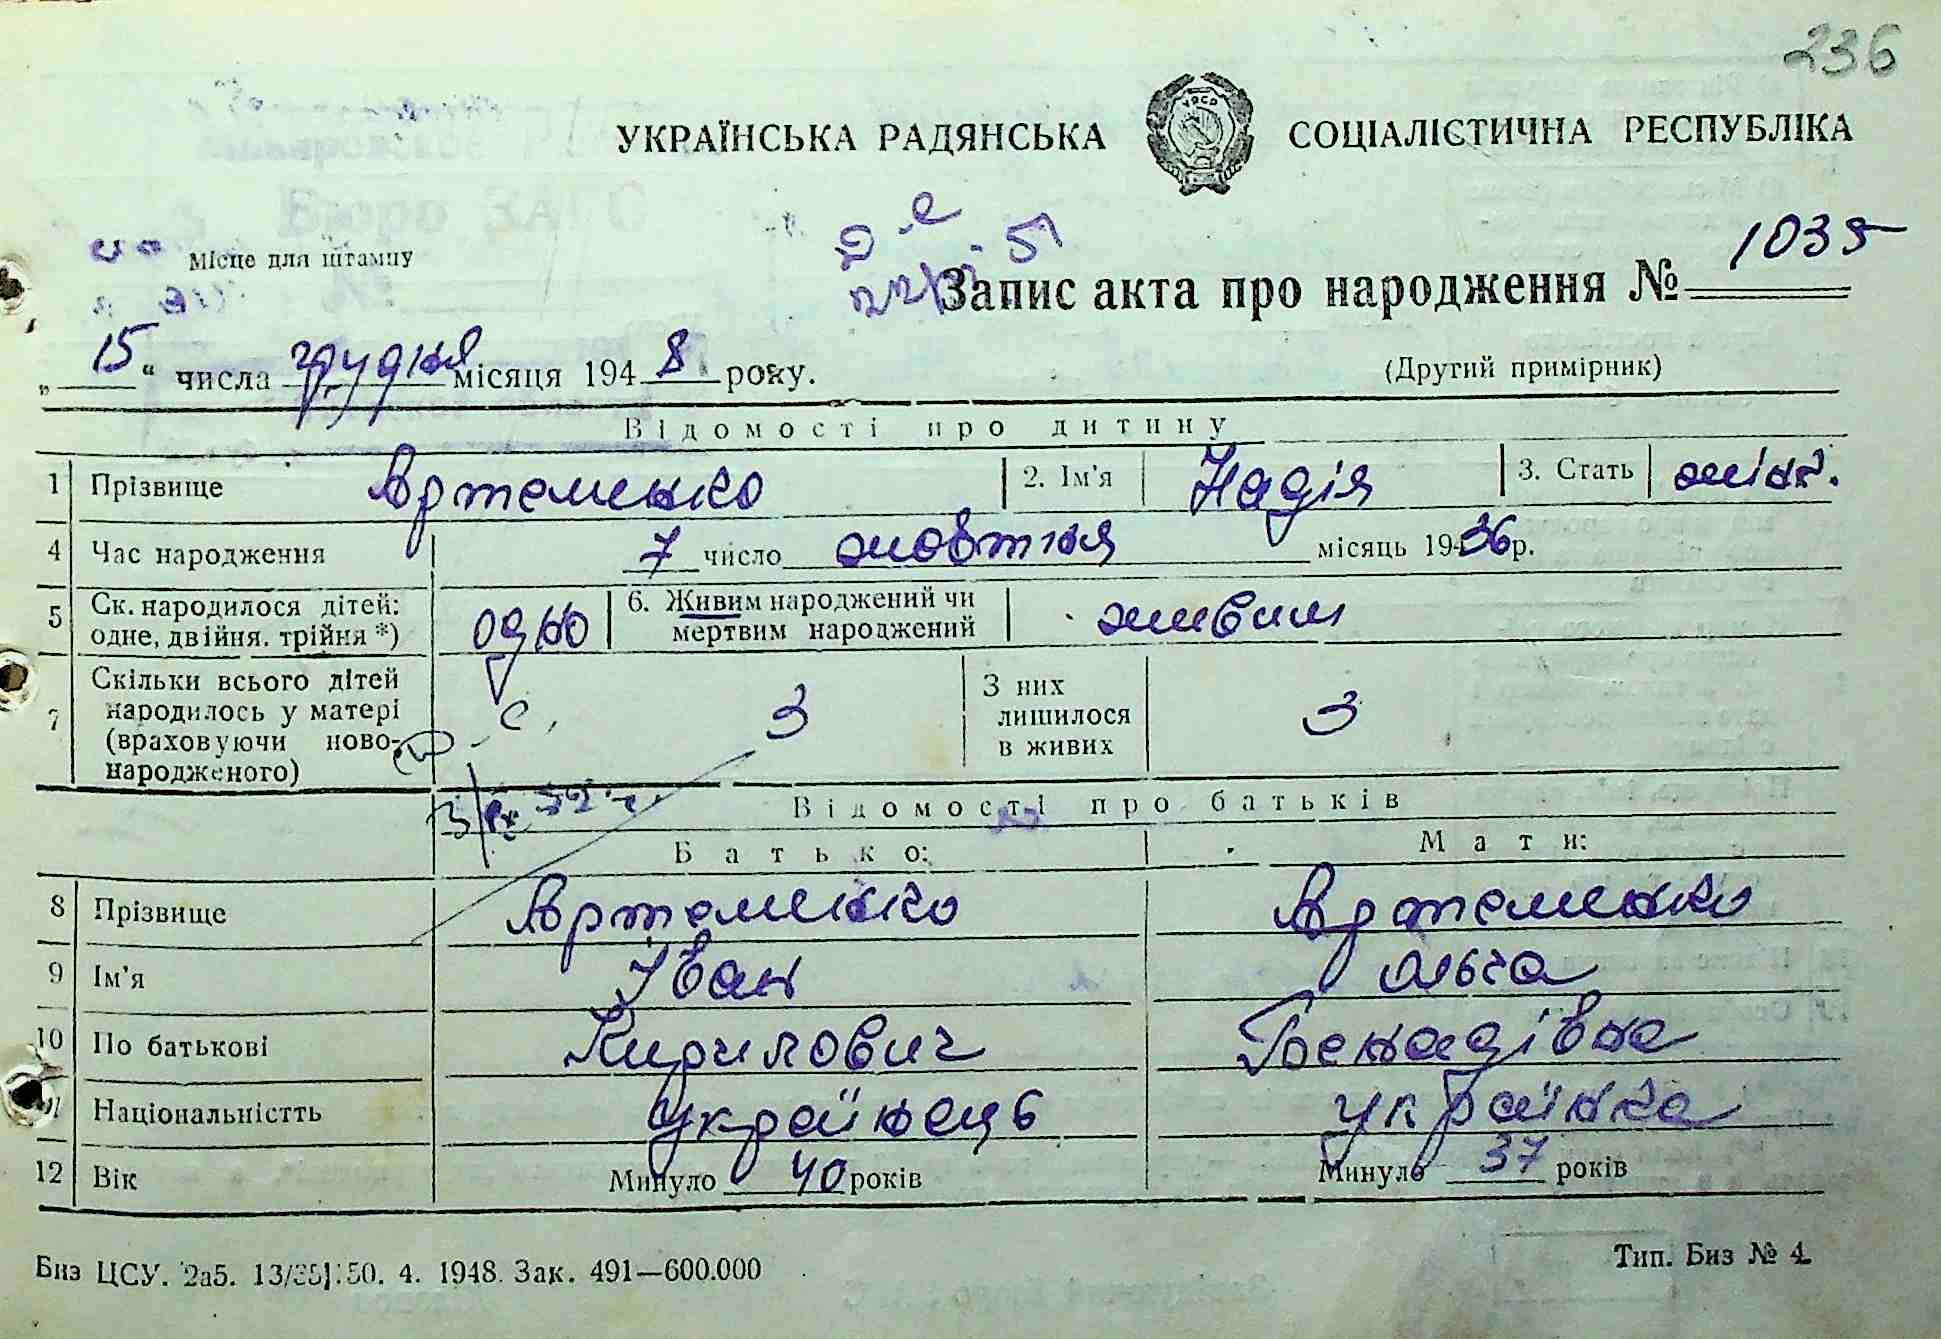 236
УКРАЇНСЬКА РАДЯНСЬКА СОЦІАЛІСТИЧНА РЕСПУБЛІКА
УРСР
Місце для штампу
Запис акта про народження № 1035
„15“ числа грудня місяця 1948 року.
(Другий примірник)
Відомості про дитину
1 Прізвище Артеменко 2. Ім'я Надія 3. Стать жіноч.
4 Час народження 7 число жовтня місяць 1936 р.
5 Ск. народилося дітей: одне, двійня. трійня *) одно 6. Живим народжений чи мертвим народжений живим
7 Скільки всього дітей народилось у матері (враховуючи ново-народженого) 3 З них лишилося в живих 3
Відомості про батьків
Батько: Мати:
8 Прізвище Артеменко Артеменко
9 Ім'я Іван Ольга
10 По батькові Кирилович Генадівна
11 Національністть українець українка
12 Вік Минуло 40 років Минуло 37 років
Биз ЦСУ. 2а5. 13/35]:50. 4. 1948. Зак. 491—600.000
Тип. Биз № 4.